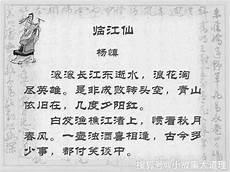 临江仙
杨慎
滚滚长江东逝水，浪花淘
尽英雄。是非成败转头空，青山
依旧在，几度夕阳红。
白发渔樵江渚上，惯看秋月
春风。一壶浊酒喜相逢，古今多
少事，都付笑谈中。
搜狐号@小故事大道理